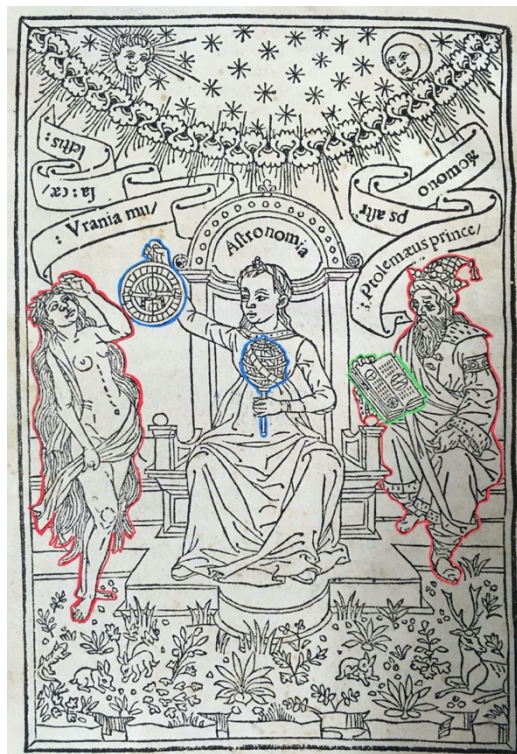 : Vrania mu/
ſa: cæ/
leſtis:
Aſtronomia
: Ptolemæus prince/
ps aſtr
onomoꝝ